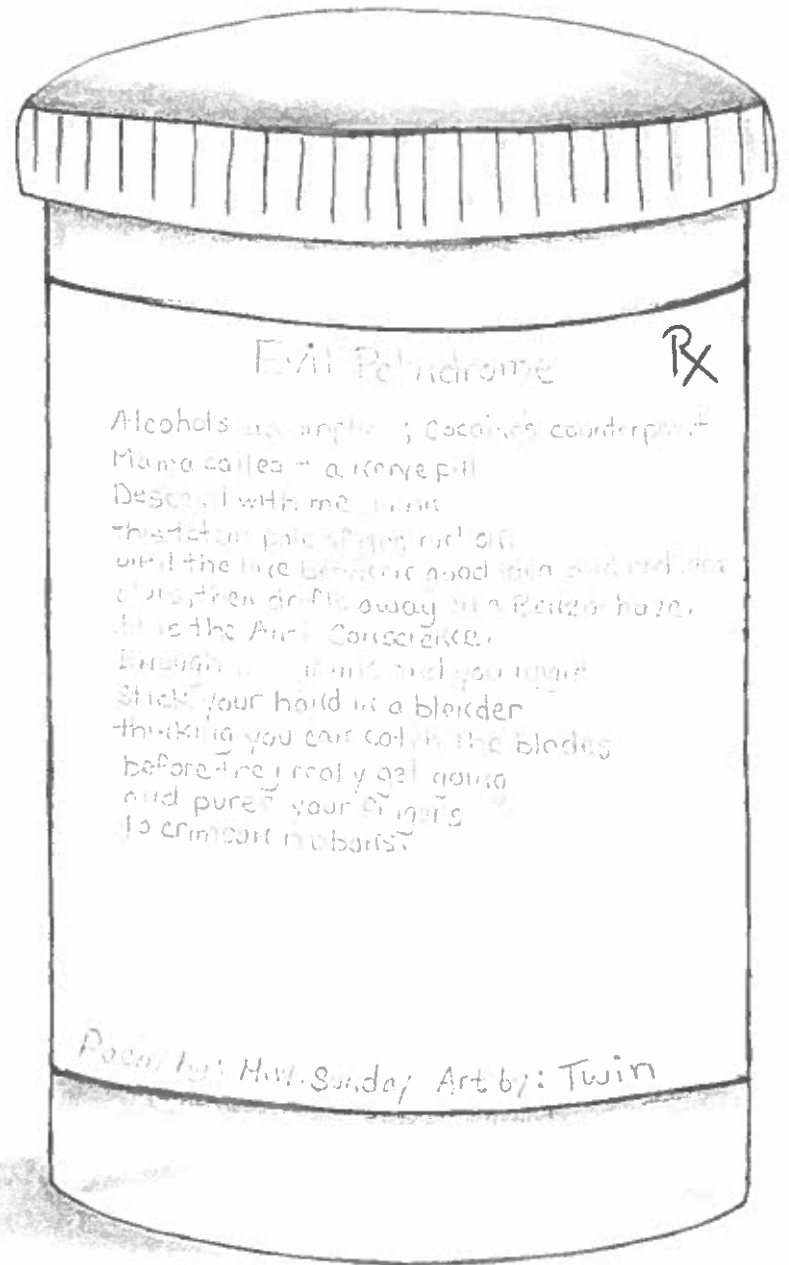 Evil Palindrome
Rx
Alcohols ; Cocaines counterpart
Mama called a nerve pill
Descend with me
this totem pole of
until the line between good idea and bad idea
blurs, then drifts away in a Benzo haze.
It is the Anti Conscience.
Enough and you might
Stick your hand in a blender
thinking you can catch the blades
before they really get going
and puree your fingers
to crimson
Poem by: Sunday Art by: Twin